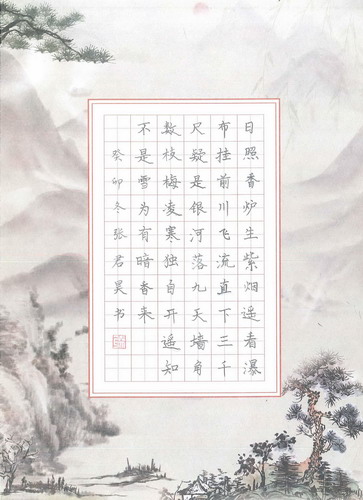 日照香炉生紫烟遥看瀑
布挂前川飞流直下三千
尺疑是银河落九天墙角
数枝梅凌寒独自开遥知
不是雪为有暗香来
癸卯冬张君昊书